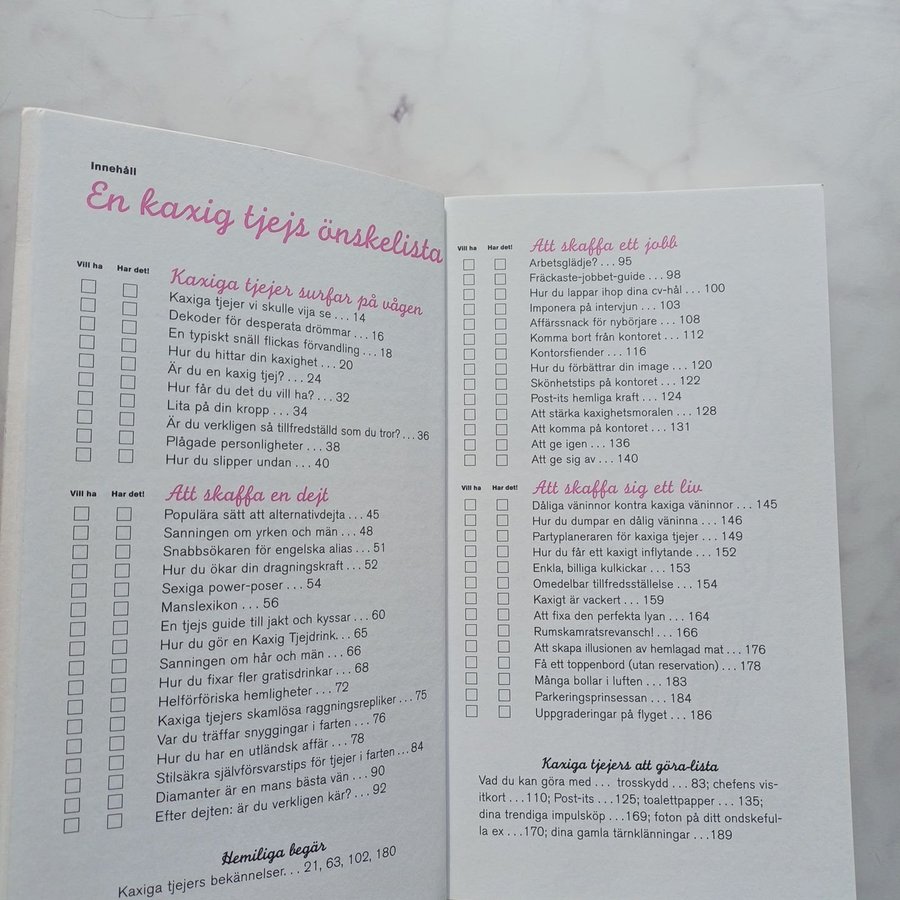 Innehåll
En kaxig tjejs önskelista
Vill ha Har det!
Kaxiga tjejer surfar på vågen
Kaxiga tjejer vi skulle vija se . . . 14
Dekoder för desperata drömmar . . . 16
En typiskt snäll flickas förvandling . . . 18
Hur du hittar din kaxighet . . . 20
Är du en kaxig tjej? . . . 24
Hur får du det du vill ha? . . . 32
Lita på din kropp . . . 34
Är du verkligen så tillfredställd som du tror? . . . 36
Plågade personligheter . . . 38
Hur du slipper undan . . . 40
Vill ha Har det!
Att skaffa en dejt
Populära sätt att alternativdejta . . . 45
Sanningen om yrken och män . . . 48
Snabbsökaren för engelska alias . . . 51
Hur du ökar din dragningskraft . . . 52
Sexiga power-poser . . . 54
Manslexikon . . . 56
En tjejs guide till jakt och kyssar . . . 60
Hur du gör en Kaxig Tjejdrink. . . 65
Sanningen om hår och män . . . 66
Hur du fixar fler gratisdrinkar . . . 68
Helförföriska hemligheter . . . 72
Kaxiga tjejers skamlösa raggningsrepliker . . . 75
Var du träffar snyggingar i farten . . . 76
Hur du har en utländsk affär . . . 78
Stilsäkra självförsvarstips för tjejer i farten . . . 84
Diamanter är en mans bästa vän . . . 90
Efter dejten: är du verkligen kär? . . . 92
Hemiliga begär
Kaxiga tjejers bekännelser. . . 21, 63, 102, 180
Vill ha Har det!
Att skaffa ett jobb
Arbetsglädje? . . . 95
Fräckaste-jobbet-guide . . . 98
Hur du lappar ihop dina cv-hål . . . 100
Imponera på intervjun . . . 103
Affärssnack för nybörjare . . . 108
Komma bort från kontoret . . . 112
Kontorsfiender . . . 116
Hur du förbättrar din image . . . 120
Skönhetstips på kontoret . . . 122
Post-its hemliga kraft . . . 124
Att stärka kaxighetsmoralen . . . 128
Att komma på kontoret . . . 131
Att ge igen . . . 136
Att ge sig av . . . 140
Vill ha Har det!
Att skaffa sig ett liv
Dåliga väninnor kontra kaxiga väninnor . . . 145
Hur du dumpar en dålig väninna . . . 146
Partyplaneraren för kaxiga tjejer . . . 149
Hur du får ett kaxigt inflytande . . . 152
Enkla, billiga kulkickar . . . 153
Omedelbar tillfredsställelse . . . 154
Kaxigt är vackert . . . 159
Att fixa den perfekta lyan . . . 164
Rumskamratsrevansch! . . . 166
Att skapa illusionen av hemlagad mat . . . 176
Få ett toppenbord (utan reservation) . . . 178
Många bollar i luften . . . 183
Parkeringsprinsessan . . . 184
Uppgraderingar på flyget . . . 186
Kaxiga tjejers att göra-lista
Vad du kan göra med . . . trosskydd . . . 83; chefens vis-
itkort . . . 110; Post-its . . . 125; toalettpapper . . . 135;
dina trendiga impulsköp . . . 169; foton på ditt ondskeful-
la ex . . . 170; dina gamla tärnklänningar . . . 189